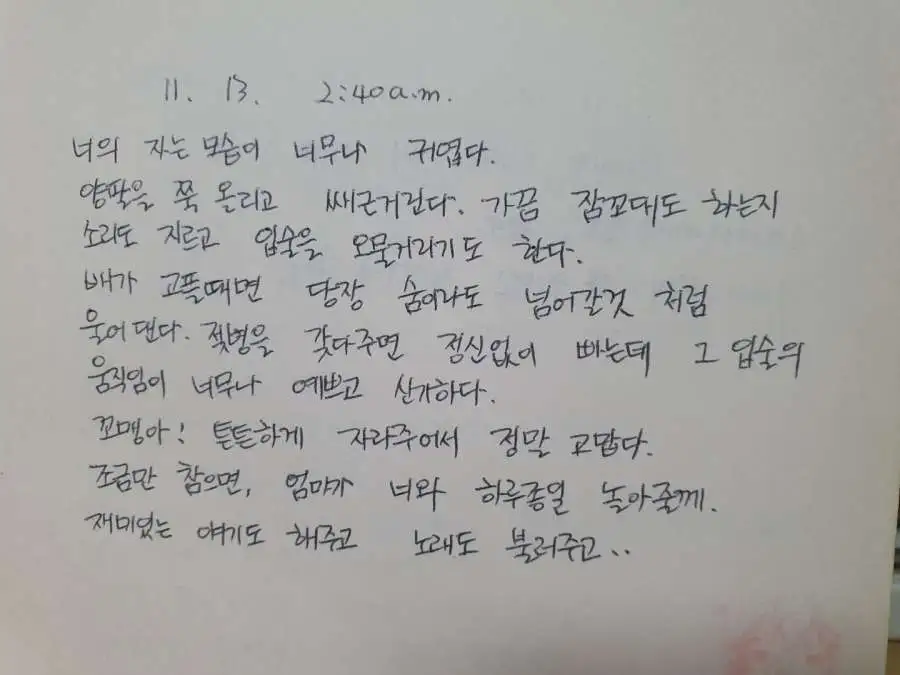 11. 13. 2:40a.m.
너의 자는 모습이 너무나 귀엽다.
양팔을 쭉 올리고 쌔근거린다. 가끔 잠꼬대도 하는지
소리도 지르고 입술을 오물거리기도 한다.
배가 고플때면 당장 숨이라도 넘어갈것 처럼
울어댄다. 젖병을 갖다주면 정신없이 빠는데 그 입술의
움직임이 너무나 예쁘고 신기하다.
꼬맹아! 튼튼하게 자라주어서 정말 고맙다.
조금만 참으면, 엄마가 너와 하루종일 놀아줄께.
재미있는 얘기도 해주고 노래도 불러주고..